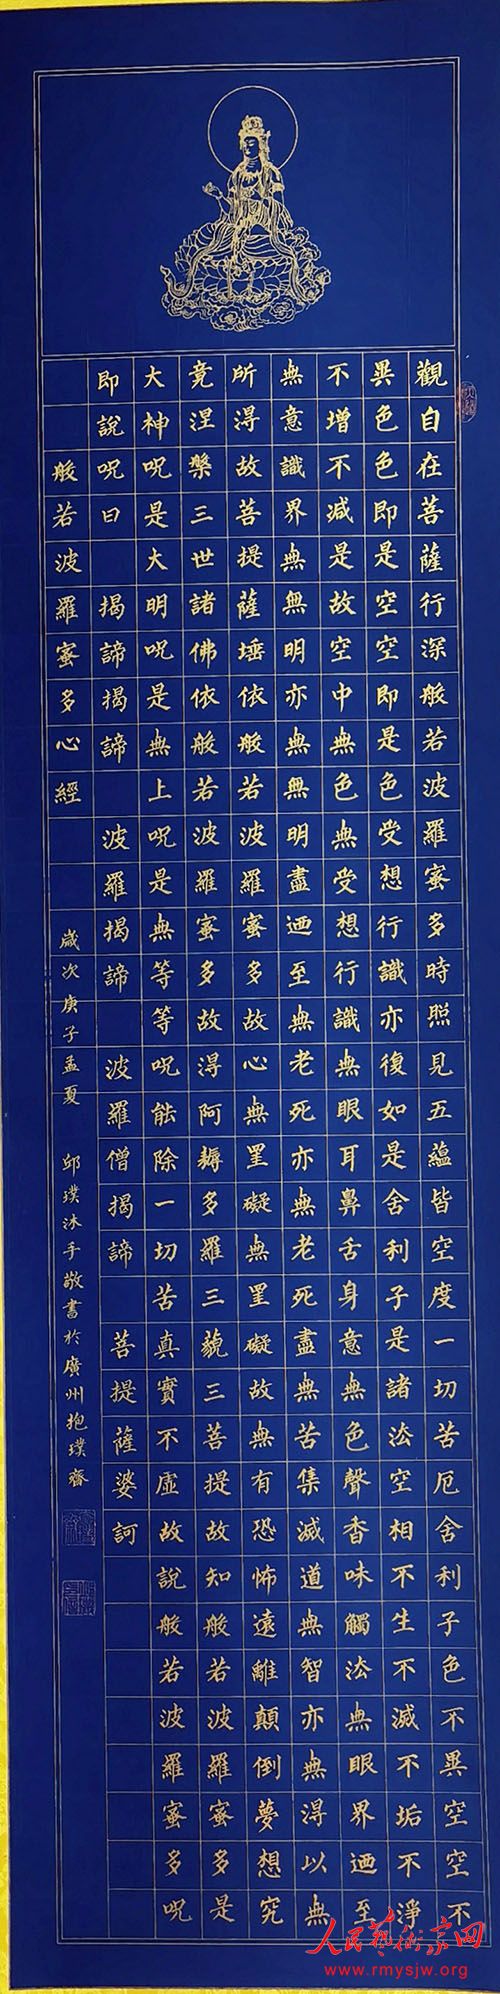 觀自在菩薩行深般若波羅蜜多時照見五蘊皆空度一切苦厄舍利子色不異空空不
異色色即是空空即是色受想行識亦復如是舍利子是諸法空相不生不滅不垢不淨
不增不減是故空中無色無受想行識無眼耳鼻舌身意無色聲香味觸法無眼界迺至
無意識界無無明亦無無明盡迺至無老死亦無老死盡無苦集滅道無智亦無得以無
所得故菩提薩埵依般若波羅蜜多故心無罣礙無罣礙故無有恐怖遠離顛倒夢想究
竟涅槃三世諸佛依般若波羅蜜多故得阿耨多羅三藐三菩提故知般若波羅蜜多是
大神呪是大明呪是無上呪是無等等呪能除一切苦真實不虛故說般若波羅蜜多呪
即說呪曰 揭諦揭諦 波羅揭諦 波羅僧揭諦 菩提薩婆訶
般若波羅蜜多心經
歲次庚子孟夏 邱璞沐手敬書於廣州抱璞齋
人民藝術家网
www.rmysjw.org